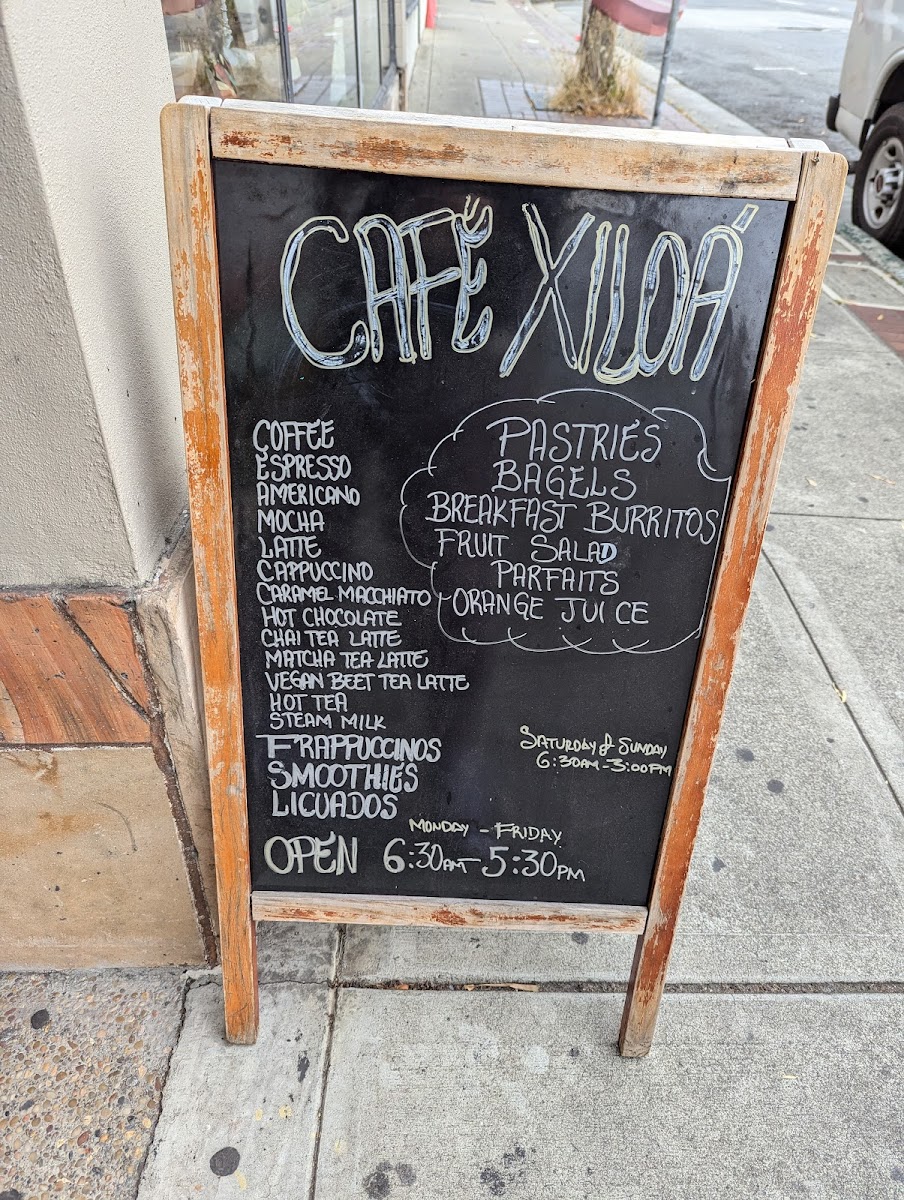 CAFÉ XILOÁ
COFFEE
ESPRESSO
AMERICANO
MOCHA
LATTE
CAPPUCCINO
CARAMEL MACCHIATO
HOT CHOCOLATE
CHAI TEA LATTE
MATCHA TEA LATTE
VEGAN BEET TEA LATTE
HOT TEA
STEAM MILK
FRAPPUCCINOS
SMOOTHIES
LICUADOS
PASTRIES
BAGELS
BREAKFAST BURRITOS
FRUIT SALAD
PARFAITS
ORANGE JUICE
SATURDAY & SUNDAY
6:30AM-3:00PM
MONDAY - FRIDAY
OPEN 6:30AM-5:30PM